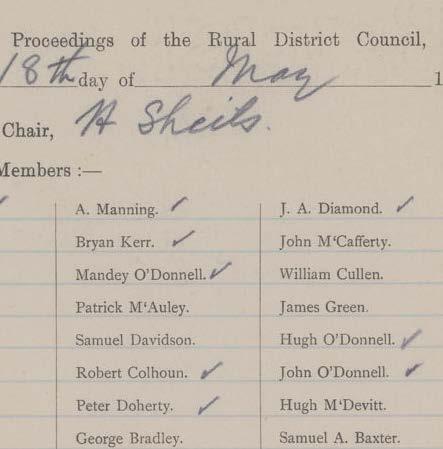 Proceedings of the Rural District Council,
18th day of May 1
Chair, H Sheils.
Members :—
A. Manning. ✓ J. A. Diamond. ✓
Bryan Kerr. ✓ John M'Cafferty.
Mandey O'Donnell. ✓ William Cullen.
Patrick M'Auley. James Green.
Samuel Davidson. Hugh O'Donnell. ✓
Robert Colhoun. ✓ John O'Donnell. ✓
Peter Doherty. ✓ Hugh M'Devitt.
George Bradley. Samuel A. Baxter.